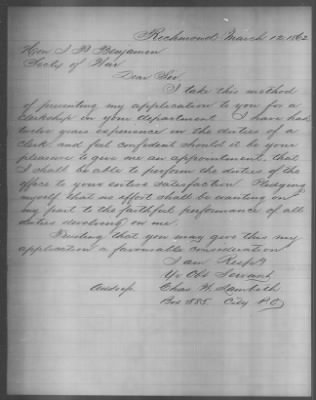 Richmond March 12 1862
Hon J P Benjamin
Secty of War
Dear Sir
I take this method
of presenting my application to you for a
clerkship in your department I have had
twelve years experience in the duties of a
clerk and feel confident should it be your
pleasure to give me an appointment that
I shall be able to perform the duties of the
office to your entire satisfaction Pledging
myself that no effort shall be wanting on
my part to the faithful performance of all
duties devolving on me
Trusting that you may give this my
application a favorable consideration
I am Respy
Yr Obt Servant
Chas H Lambeth
Box 885 City P O